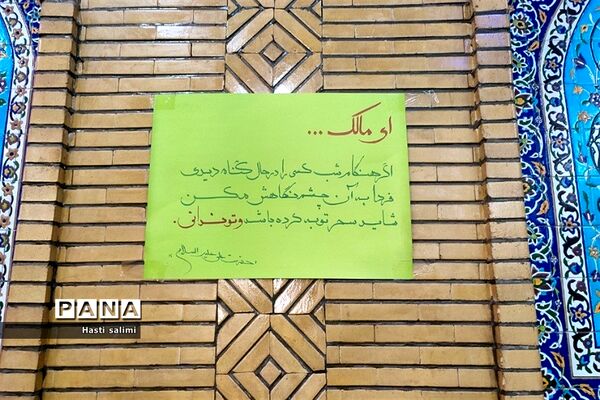 ای مالک ...
اگر هنگام شب کسی را در حال گناه دیدی
فردا به آن چشم نگاهش مکن
شاید سحر توبه کرده باشد و تو ندانی.
«حضرت علی علیه السلام»
PANA
Hasti salimi